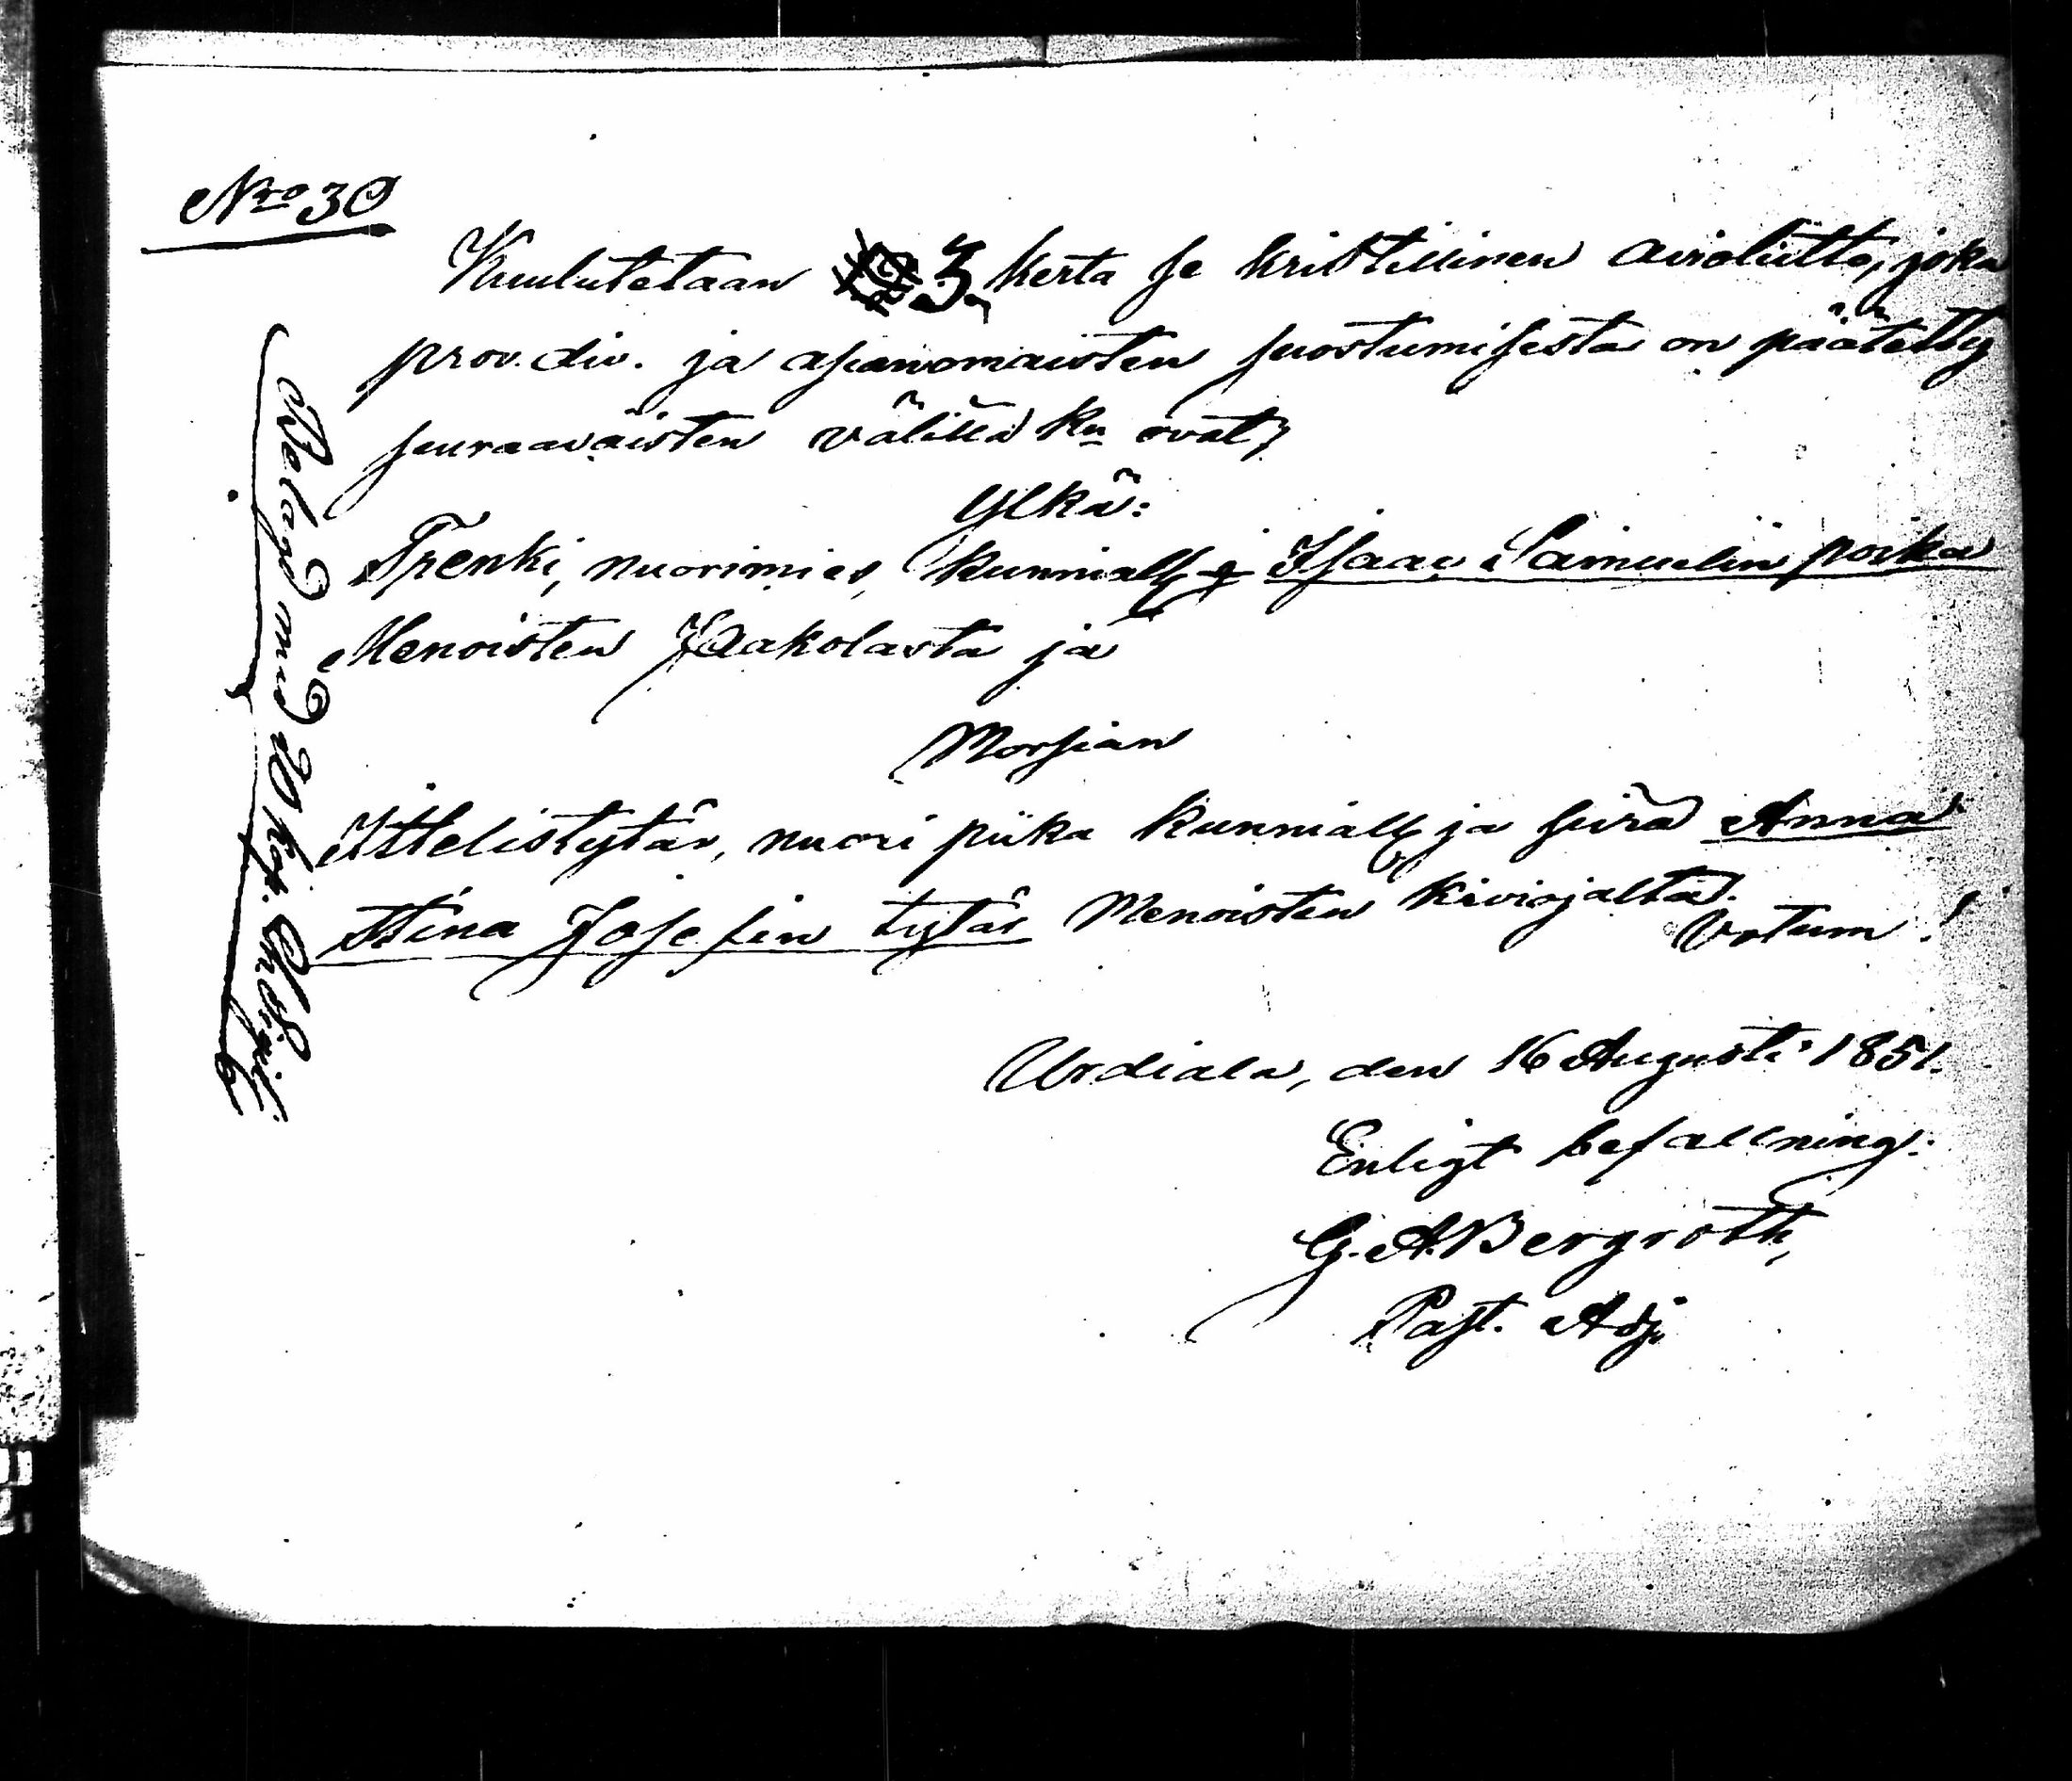 Nro 30
Kuulutetaan 3 kerta se kristillinen avioliitto, joka
prov. div. ja asianomaisten suostumisesta on päätetty
seuraavaisten välillä kn ovat;
Ylkä:
Trenki, nuorimies, kunniall. Isaac Samuelin poika
Menoisten Jaakolasta ja
Morsian
Ittelistytär, nuori piika kunniall ja siviä Anna
Stina Josefin tytär Menoisten Kiviojalta.
Votum!
Urdiala, den 16 Augusti 1851.
Enligt befallning:
G. A. Bergroth,
Past. Adj.
Belagd med 20 kop. Ch. Sigil.